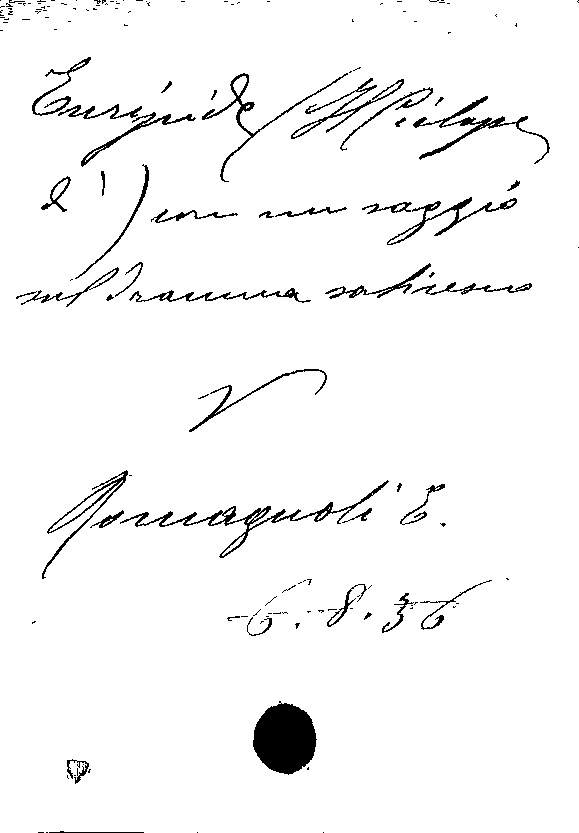 Euripide (Il Ciclope
d') con un saggio
sul dramma satiresco
V
Romagnoli E.
6.8.36